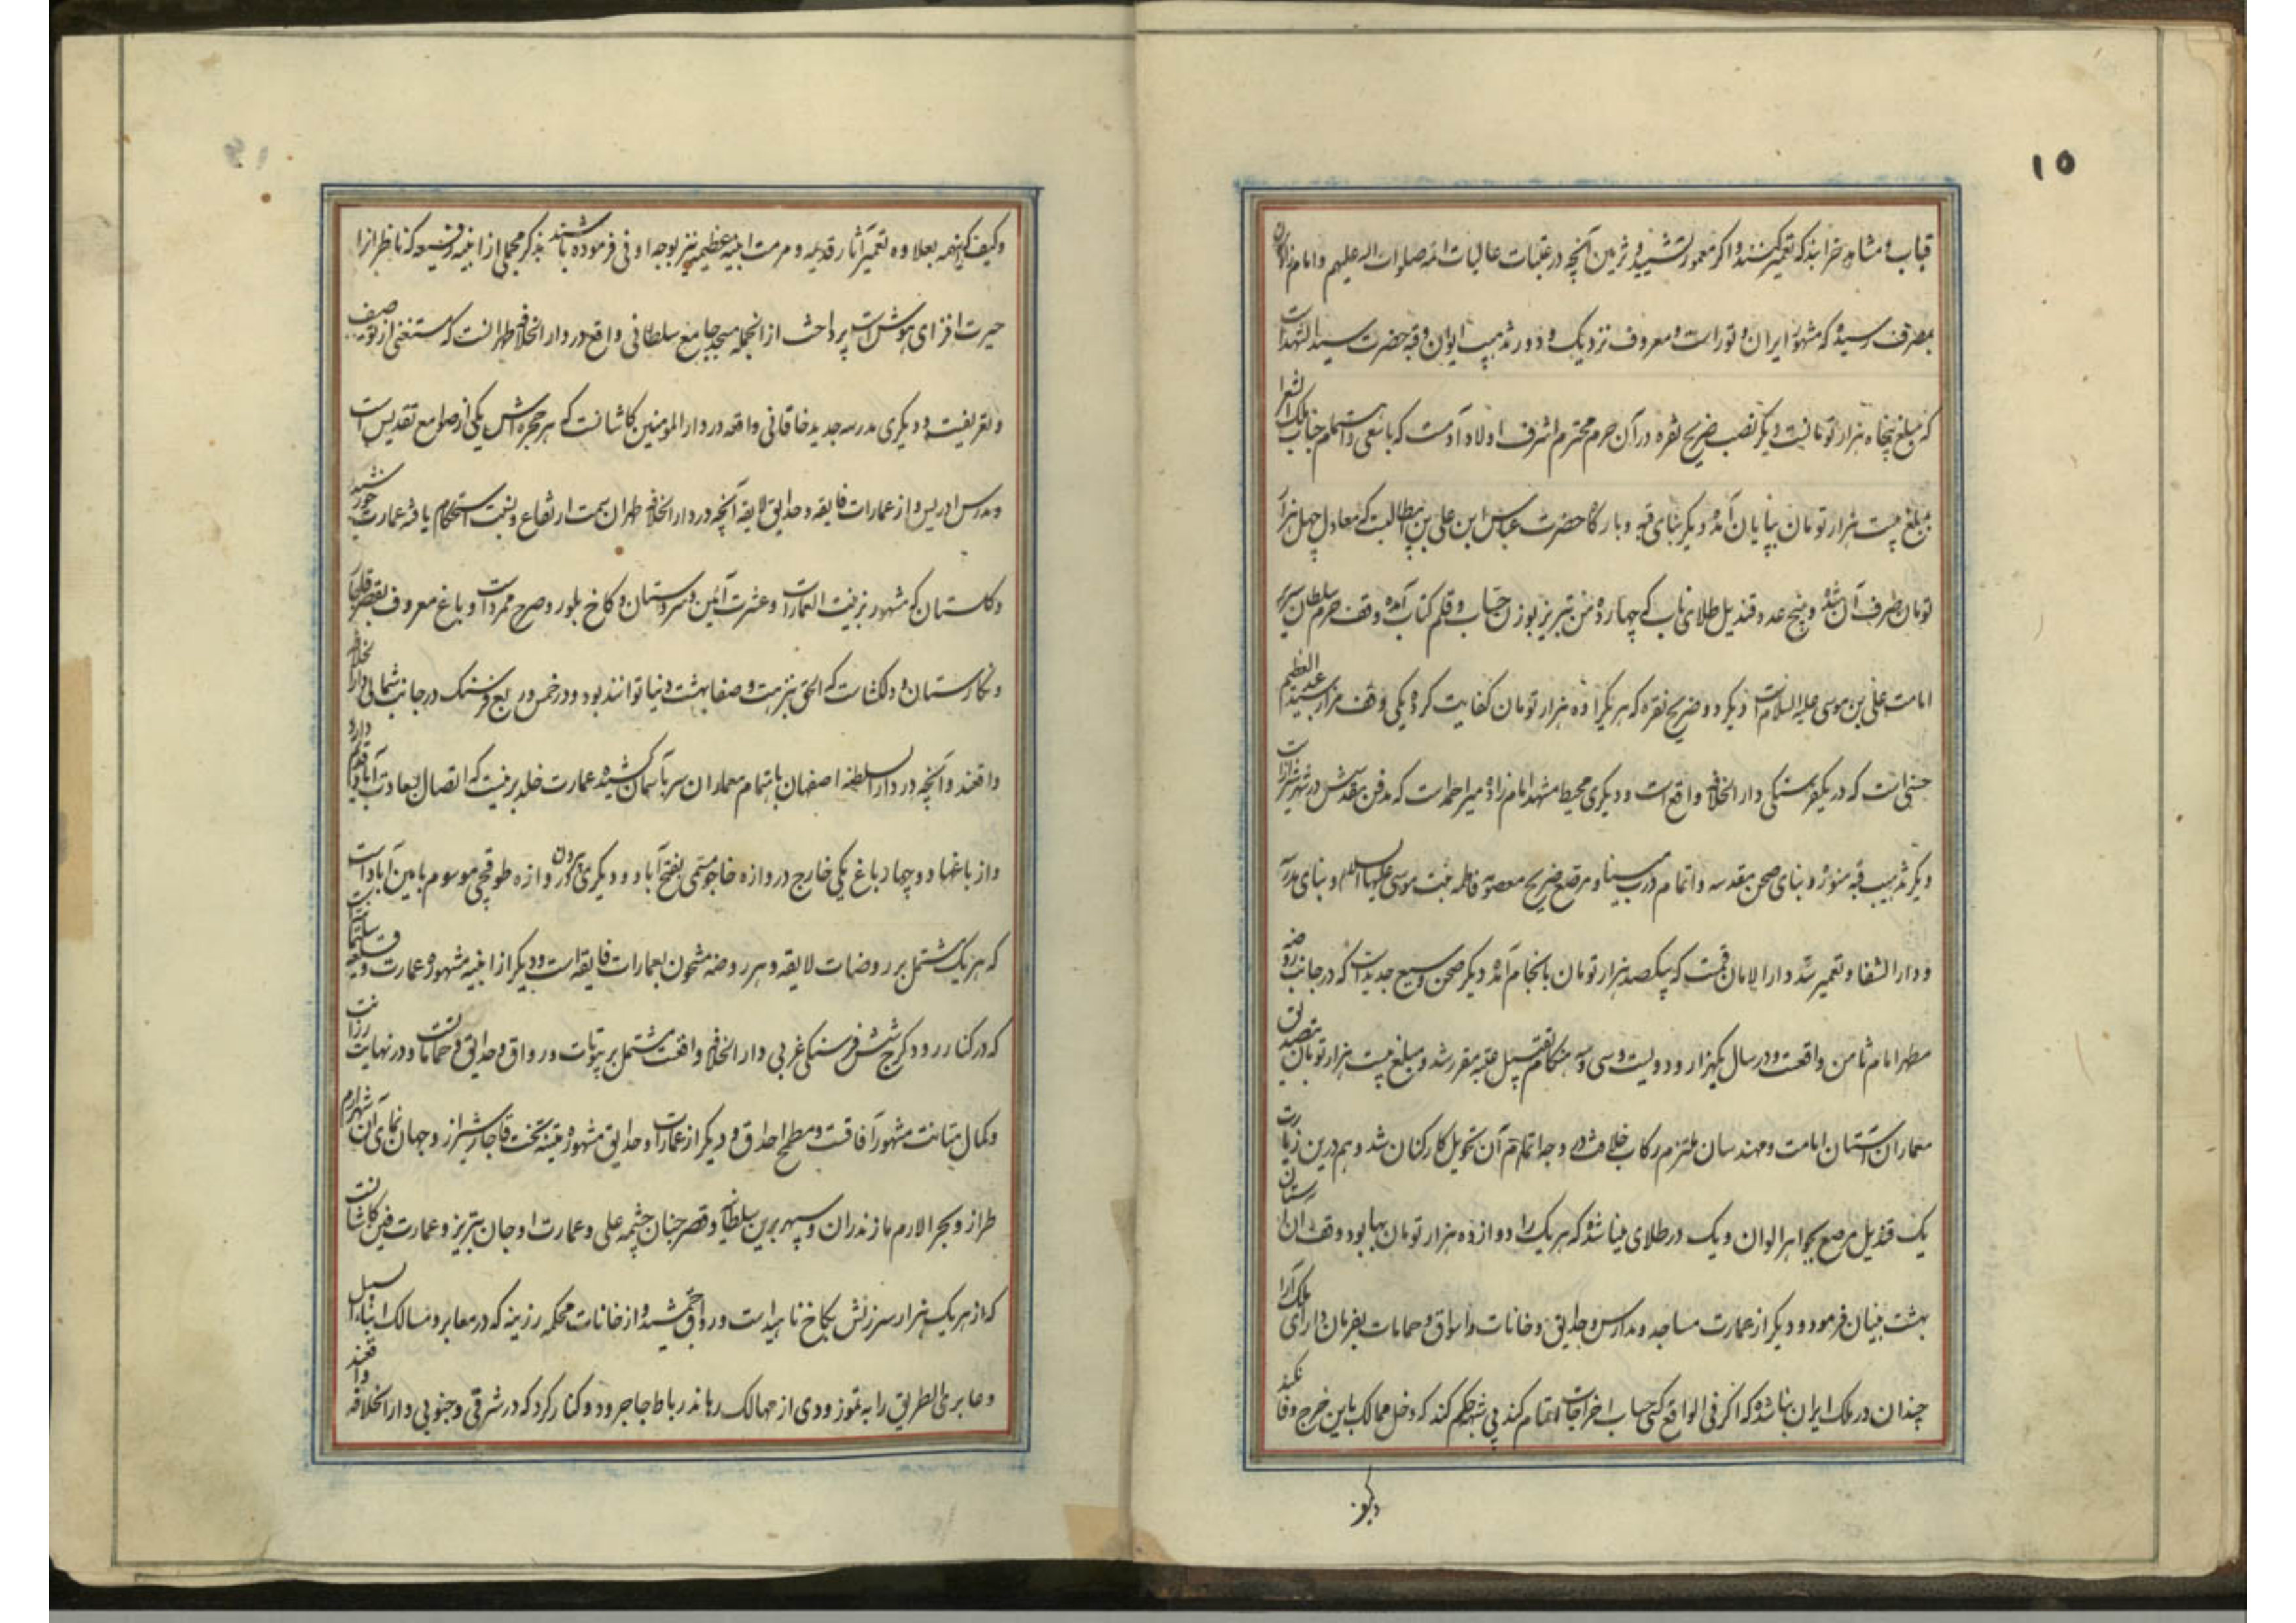 ۱۵
قباب و مشاهد خرابند که تعمیر کنند و اگر معمور تشیید و تزیین آنچه در عتبات عالیات ائمه صلوات الله علیهم و امام زادگان
بمصرف رسیده که مشهور ایران و تورانست و معروف نزدیک و دور تذهیب ایوان و قبه حضرت سید الشهداست
که مبلغ پنجاه هزار تومانست و دیگر نصب ضریح نقره در آن حرم محترم اشرف اولاد آدمست که باسعی و اهتمام جناب ملک الشعرا
بمبلغ بیست هزار تومان بپایان آمده و دیگر بنای قبه و بارگاه حضرت عباس ابن علی بن ابیطالبست که معادل چهل هزار
تومان صرف آن شده و پنج عدد قندیل طلای ناب که چهارده من تبریز بوزن حساب و قلم کتاب آمده وقف حرم سلطان سریر
امامت علی بن موسی علیه السلام است دیگر دو ضریح نقره که هر یکرا ده هزار تومان کفایت کرده یکی وقف مزار سید عبدالعظیم
حسنی است که در یکفرسنگی دار الخلافه واقع است و دیگری محیط مشهد امام زاده میر احمد است که مدفن مقدسش در شهر شیراز است
دیگر تذهیب قبه منوره و بنای صحن مقدسه و اتمام درب مینا و مرقع ضریح معصومه فاطمه بنت موسی علیها السلام و بنای مدرسه
و دار الشفا و تعمیر سد دار الامان قمست که یکصد هزار تومان بانجام آمده دیگر صحن وسیع جدیدست که در جانب روضه
مطهر امام ثامن واقعست و در سال یکهزار و دویست و سی و سه هنگام تقبیل عتبه مقرر شد و مبلغ بیست هزار تومان بتصدیق
معماران آستان امامت و مهندسان ملتزم رکاب خلافت وجه اتمام آن تحویل کارکنان شد و هم درین زیارت
یک قندیل مرصع بجواهر الوان و یک در طلای مینا شده که هر یک را دوازده هزار تومان بها بود وقف آن آستان
بهشت بنیان فرمود و دیگر از عمارت مساجد و مدارس و حدایق و خانات و اسواق و حمامات بفرمان دارای ملک آرا
چندان در ملک ایران بنا شده که اگر فی الواقع کسی حساب اخراجات اتمام کند بی شبهه حکم کند که دخل ممالک باین خرج وفا نکند
و کیف که اینهمه بعلاوه تعمیر آثار قدیمه و مرمت ابنیه عظیمه نیز بوجه اوفی فرموده باشند بذکر مجملی از ابنیه رفیعه که ناظر انرا
حیرت افزای هوش است پرداخت از انجمله مسجد جامع سلطانی واقع در دار الخلافه طهرانست که مستغنی از توصیف
و تعریفست و دیگری مدرسه جدید خاقانی واقعه در دار المومنین کاشانست که هر حجره اش یکی از صوامع تقدیس است
و مدرس ادریس و از عمارات فایقه و حدایق لایقه آنچه در دار الخلافه طهران سمت ارتفاع و نعت استحکام یافته عمارت خورشید
و گلستان که مشهور بزینت العمارات و عشرت آئین و سروستان و کاخ بلور و صرح ممرد است و باغ معروف بقصر قاجار
و نگارستان و دلگشاست که الحق بنزهت و صفا بهشت دنیا توانند بود و در خمس و ربع فرسنگ در جانب شمالی دار الخلافه
واقعند و آنچه در دار السلطنه اصفهان باهتمام معماران سر بآسمان کشیده عمارت خلد برینست که اتصال بسعادت آباد قدیم دارد
و از باغها دو چهار باغ یکی خارج دروازه خاجو مسمی بفتح آباد و دیگری بیرون دروازه طوقچی موسوم بامین آبادست
که هر یک مشتمل بر روضات لایقه و هر روضه مشحون بعمارات فایقه است و دیگر از ابنیه مشهوره عمارت و قلعه سلیمانیه است
که در کنار رود کرج شش فرسنگی غربی دار الخلافه واقعست مشتمل بر بیوتات و رواق و حدایق و حماماتست و در نهایت رزانت
و کمال متانت مشهور آفاقست و مطمح احداق و دیگر از عمارات و حدایق مشهوره متینه تخت قاجار شیراز و جهان نمای آن شهر ارم
طراز و بحر الارم مازندران و سپهر برین سلطانیه و قصر جنان چشمه علی و عمارت اوجان تبریز و عمارت فین کاشانست
که از هر یک هزار سرزنش بکاخ ناهیدست و رواق جمشید و از خانات محکمه رزینه که در معابر و مسالک ابناء السبیل
و عابری الطریق را به تموز و دی از مهالک رهاند رباط جاجرود و کنار گرد که در شرقی و جنوبی دار الخلافه واقعند